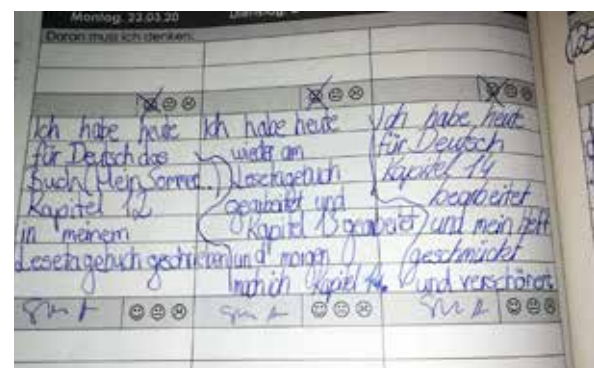 Montag, 23.03.20
Daran muss ich denken:
Ich habe heute
für Deutsch das
Buch (Mein Sommer...)
Kapitel 12
in meinem
Lesetagebuch geschrieben
Ich habe heute
wieder am
Lesetagebuch
gearbeitet und
Kapitel 13 gearbeitet
und morgen
mach ich Kapitel 14.
Ich habe heute
für Deutsch
Kapitel 14
bearbeitet
und mein Heft
geschmückt
und verschönert